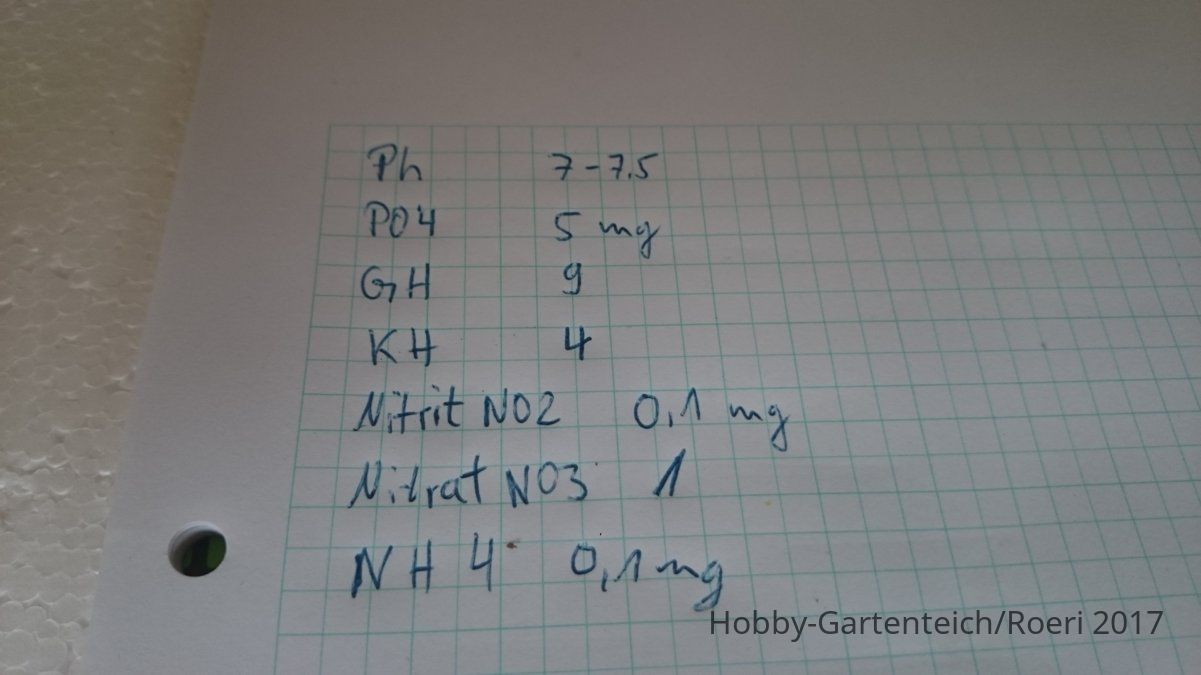 Ph 7-7.5
PO4 5 mg
GH 9
KH 4
Nitrit NO2 0,1 mg
Nitrat NO3 1
NH4 0,1 mg
Hobby-Gartenteich/Roeri 2017